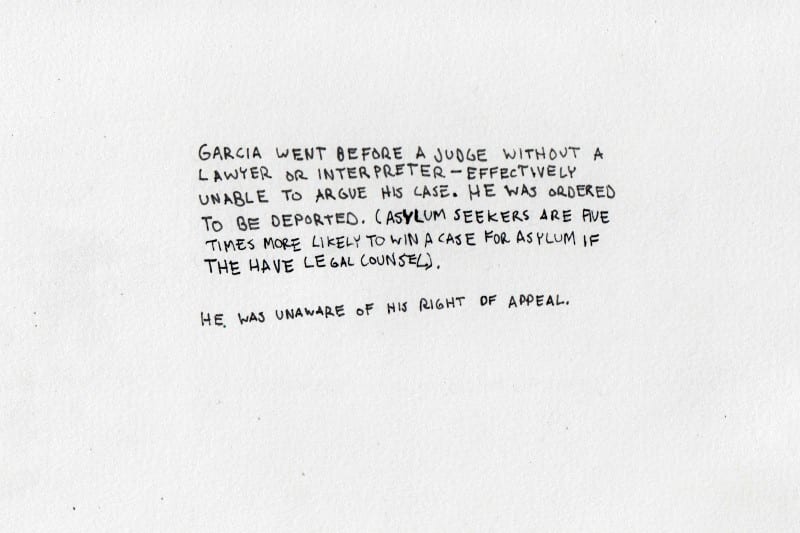 GARCIA WENT BEFORE A JUDGE WITHOUT A
LAWYER OR INTERPRETER – EFFECTIVELY
UNABLE TO ARGUE HIS CASE. HE WAS ORDERED
TO BE DEPORTED. (ASYLUM SEEKERS ARE FIVE
TIMES MORE LIKELY TO WIN A CASE FOR ASYLUM IF
THE HAVE LEGAL COUNSEL).
HE WAS UNAWARE OF HIS RIGHT OF APPEAL.